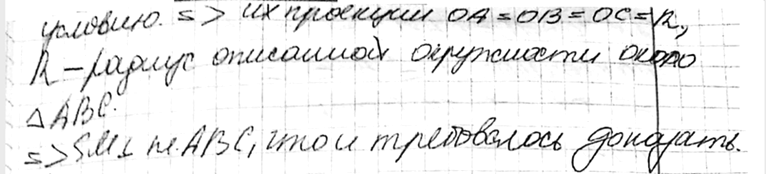 условию. => их проекции OA = OB = OC = R,
R – радиус описанной окружности около
△ ABC.
=> SM ⊥ пл. ABC, что и требовалось доказать.